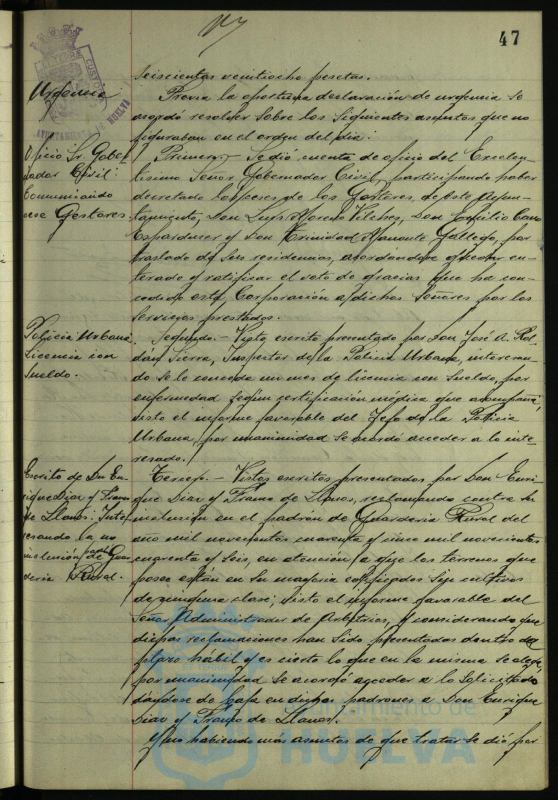 47
seiscientas veintiocho pesetas.
Urgencia
Previa la oportuna declaración de urgencia se
acordó resolver sobre los siguientes asuntos que no
figuraban en el orden del día:
Oficio Sr. Gober-
nador Civil
Comunicando
cese Gestores
Primero.- Se dió cuenta de oficio del Excelen-
tísimo Señor Gobernador Civil, participando haber
decretado los ceses de los Gestores de este Ayun-
tamiento, Don Luis Moreno Vilches, Don Emilio Cano
y Don Trinidad Gallego, por
traslado de sus residencias, acordándose quedar en-
terado y ratificar el voto de gracias que ha con-
cedido esta Corporación a dichos Señores por los
servicios prestados.
Policía Urbana.
Licencia con
sueldo.
Segundo.- Visto escrito presentado por Don José A. Rol-
dán Sierra, Inspector de la Policía Urbana, interesan-
do se le conceda un mes de licencia con sueldo, por
enfermedad, según certificación médica que acompaña;
visto el informe favorable del Jefe de la Policía
Urbana, por unanimidad se acordó acceder a lo inte-
resado.
Escrito de Don En-
rique Díaz y Franco
de Llanos. Inte-
resando la no
inclusión padrón de Guar-
dería Rural.
Tercero.- Vistos escritos presentados por Don Enri-
que Díaz y Franco de Llanos, reclamando contra la
inclusión en el padrón de Guardería Rural del
año mil novecientos cuarenta y cinco mil novecientos
cuarenta y seis, en atención a que los terrenos que
posee están en su mayoría sin cultivos
de ninguna clase; visto el informe favorable del
Señor Administrador de Arbitrios, y considerando que
dichas reclamaciones han sido presentadas dentro del
plazo hábil y es cierto lo que en la misma se alega,
por unanimidad se acordó acceder a lo solicitado
dándose de baja en dichos padrones a Don Enrique
Díaz y Franco de Llanos.
Y no habiendo más asuntos de que tratar se dió por
Ayuntamiento de
HUELVA